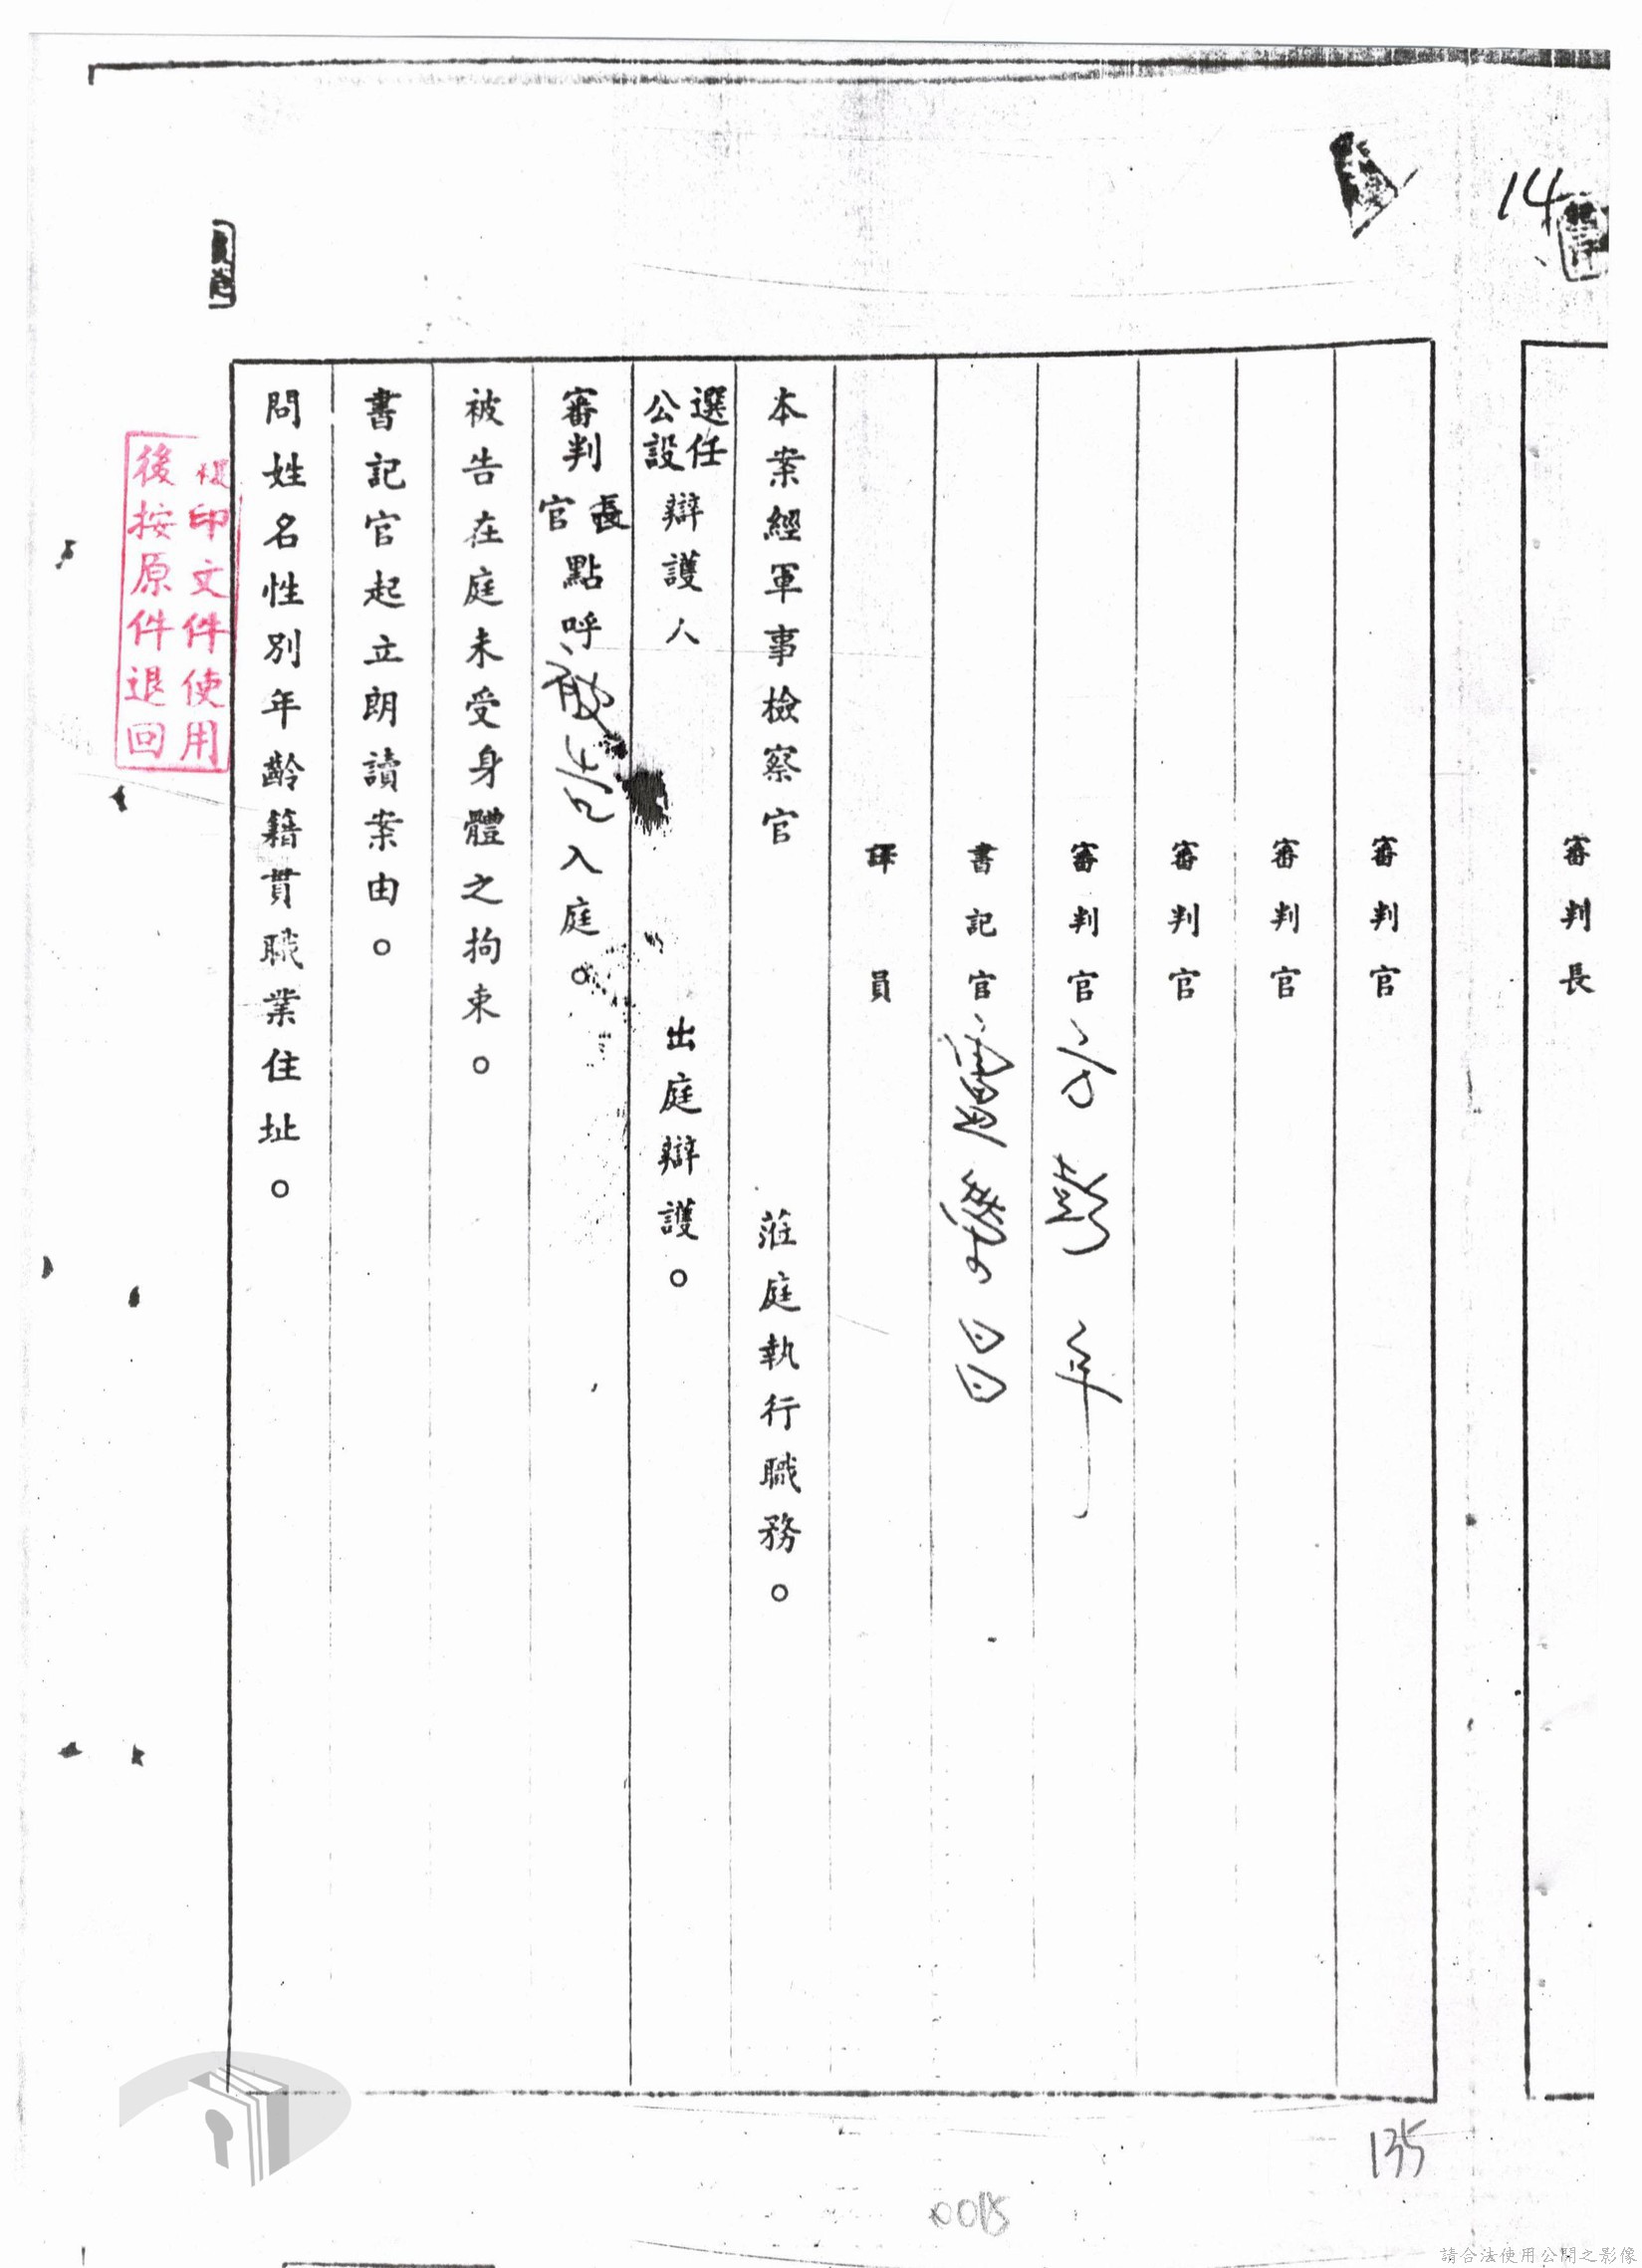 14
審判長
審判官
審判官
審判官
審判官 方彭年
書記官
員
本案經軍事檢察官 蒞庭執行職務。
選任
公設
辯護人 出庭辯護。
審判
長
官
點呼被告入庭。
被告在庭未受身體之拘束。
書記官起立朗讀案由。
問姓名性別年齡籍貫職業住址。
印文件使用
後按原件退回
135
請合法使用公開之影像